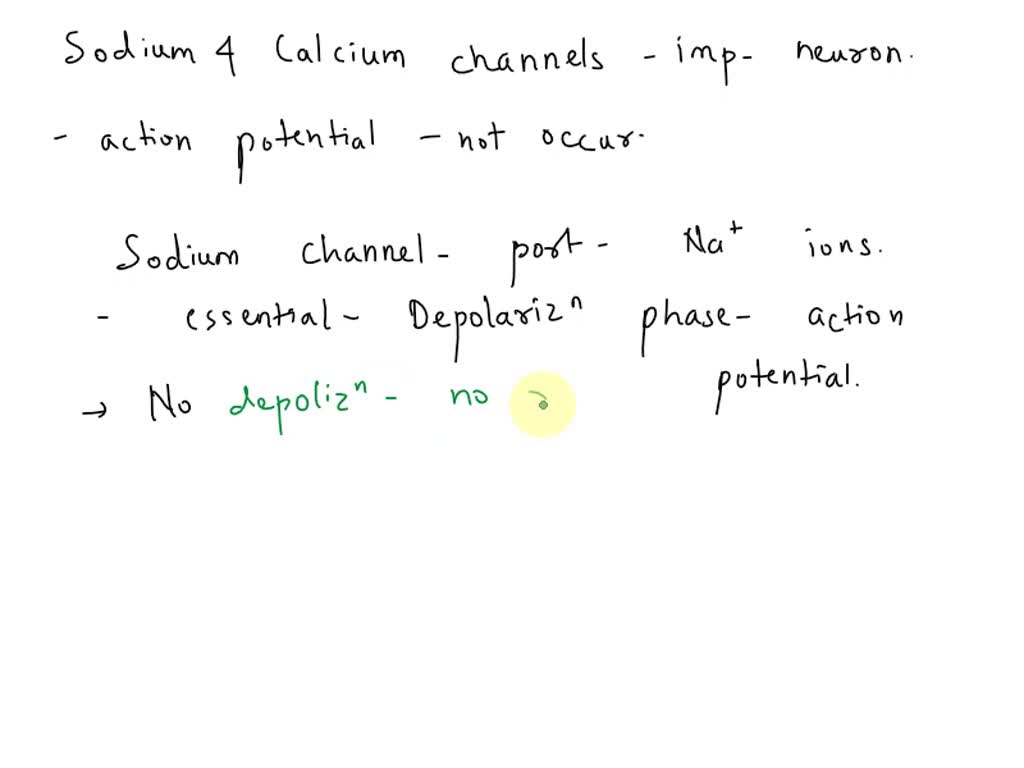 Sodium & Calcium channels - imp- neuron.
- action potential - not occur.
Sodium channel - port - Na+ ions.
- essential - Depolarizn phase - action potential.
→ No depolizn - no